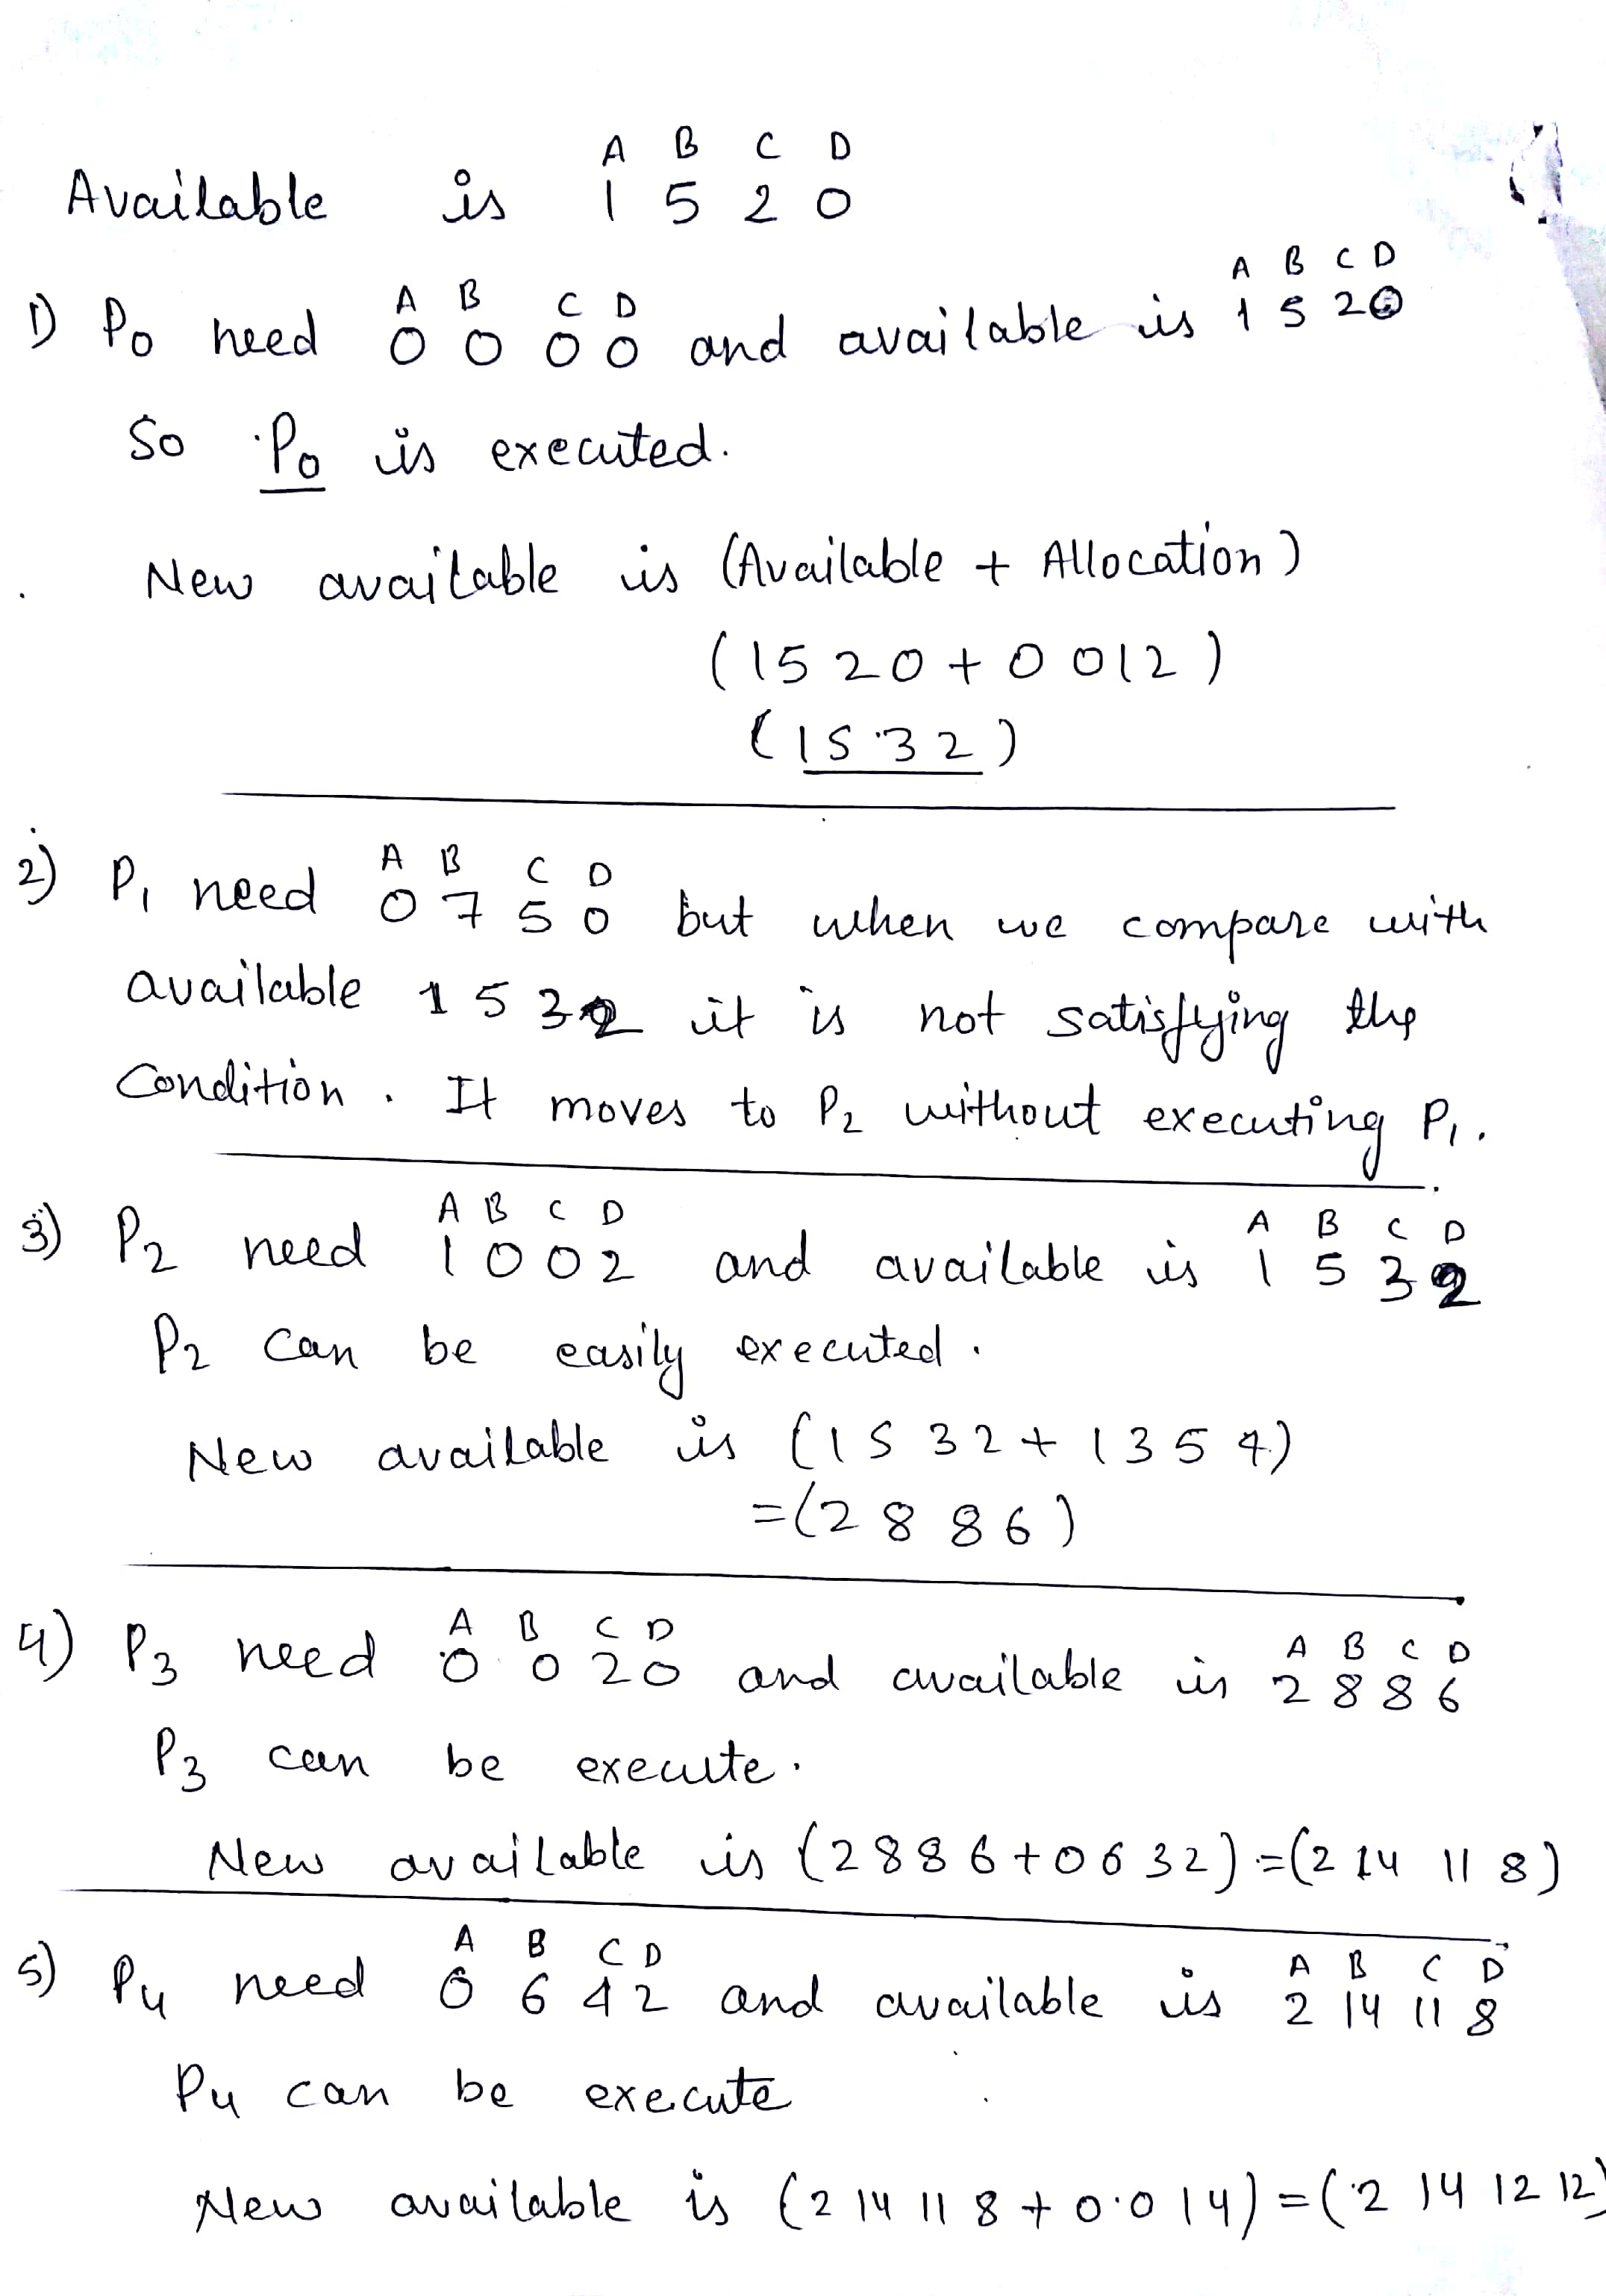 A B C D
Available is 1 5 2 0
A B C D
1) P0 need A B C D
0 0 0 0 and available is 1 5 2 0
So P0 is executed.
New available is (Available + Allocation)
(1 5 2 0 + 0 0 1 2)
(1 5 3 2)
A B C D
2) P1 need 0 7 5 0 but when we compare with
available 1 5 3 2 it is not satisfying the
Condition. It moves to P2 without executing P1.
A B C D A B C D
3) P2 need 1 0 0 2 and available is 1 5 3 2
P2 can be easily executed.
New available is (1 5 3 2 + 1 3 5 4)
=(2 8 8 6)
A B C D A B C D
4) P3 need 0 0 2 0 and available is 2 8 8 6
P3 can be execute.
New available is (2 8 8 6 + 0 6 3 2) = (2 14 11 8)
A B C D A B C D
5) P4 need 0 6 4 2 and available is 2 14 11 8
P4 can be execute
New available is (2 14 11 8 + 0 0 1 4) = (2 14 12 12)